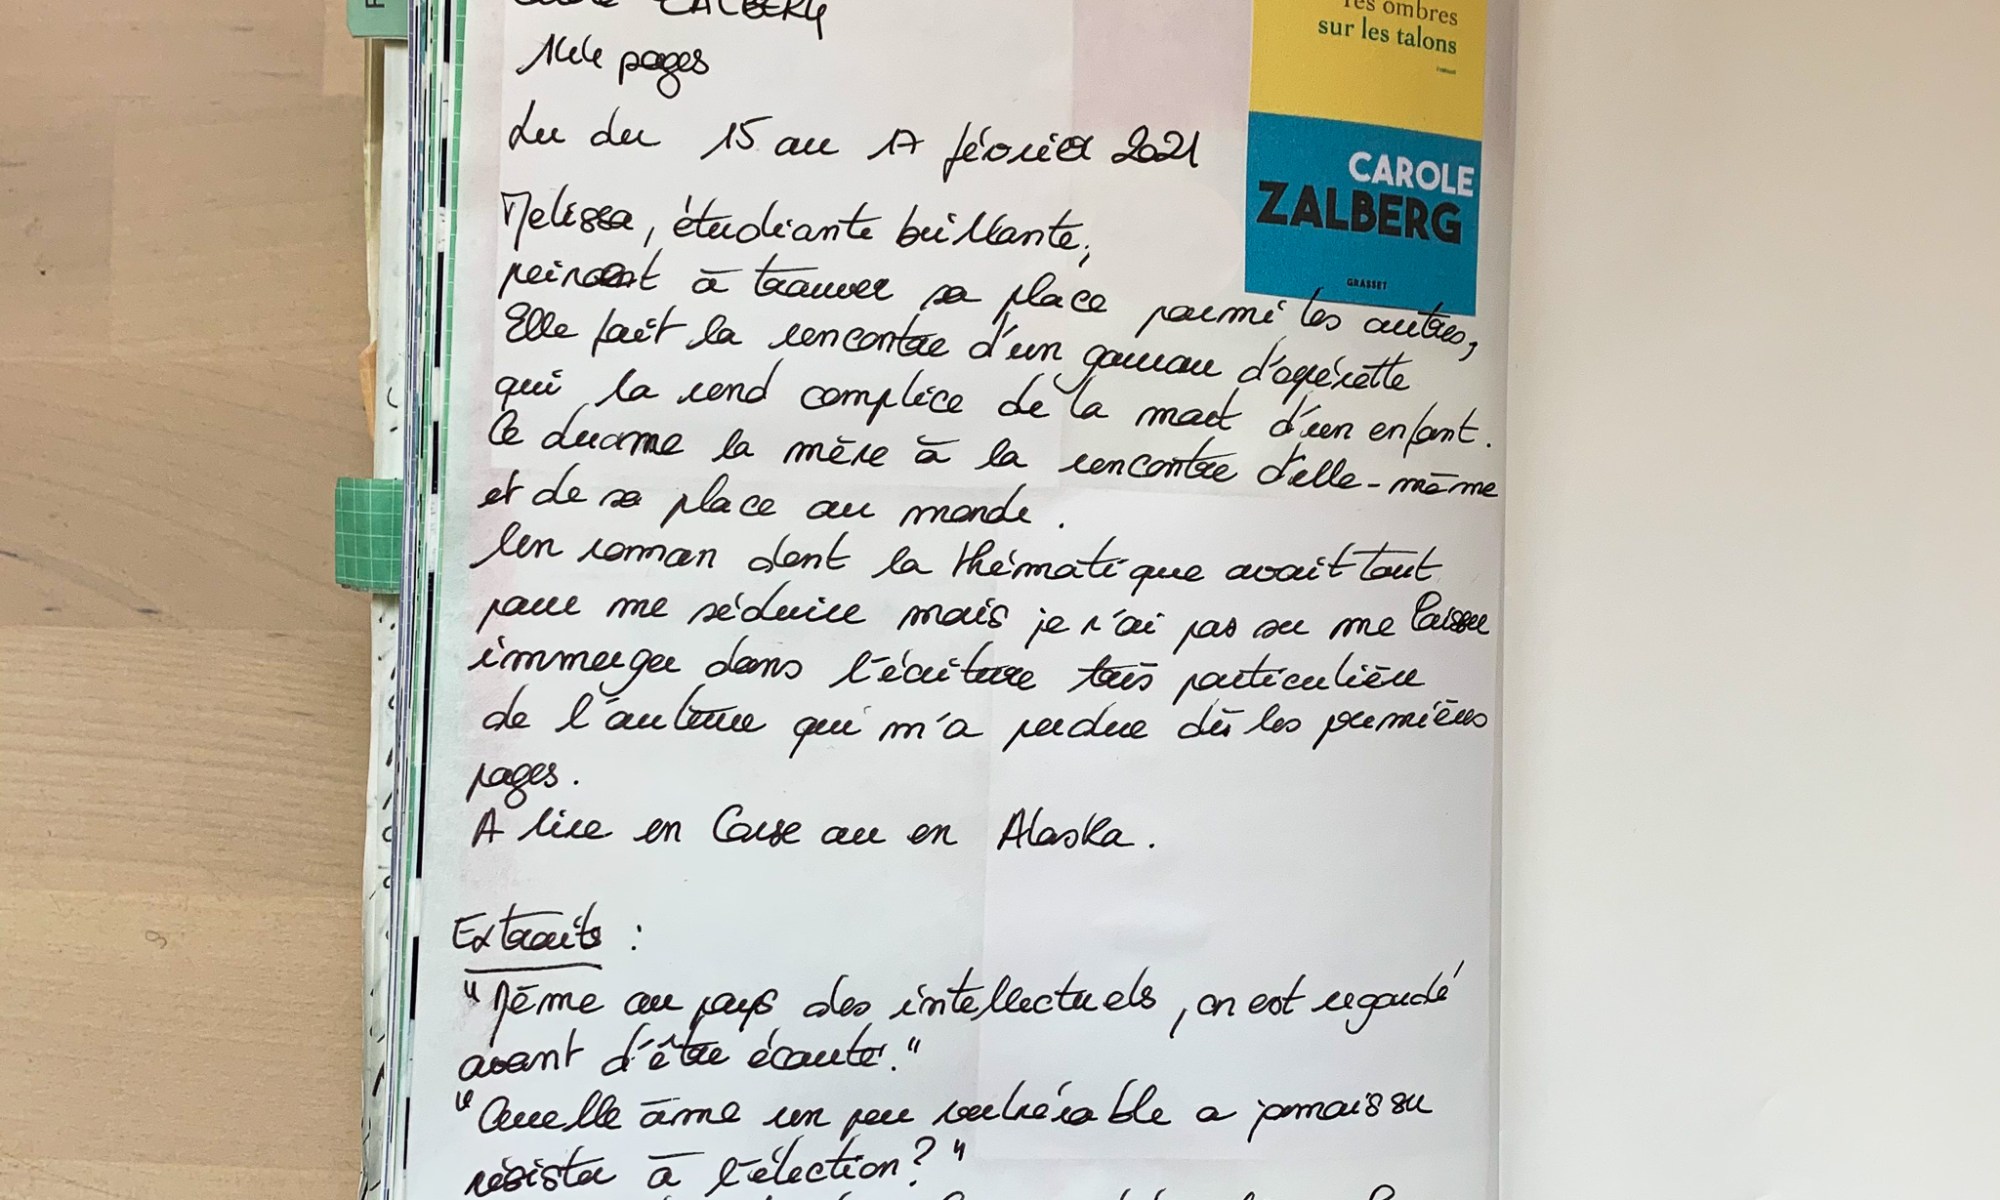 Carole ZALBERG
pages
Lu du 15 au 17 février 2021
Melissa, étudiante brillante,
peinant à trouver sa place parmi les autres,
Elle fait la rencontre d'un gourou d'opérette
qui la rend complice de la mort d'un enfant.
Ce drame la mène à la rencontre d'elle-même
et de sa place au monde.
Un roman dont la thématique avait tout
pour me séduire mais je n'ai pas su me laisser
immerger dans l'écriture très particulière
de l'auteure qui m'a perdue dès les premières
pages.
A lire en Corse ou en Alaska.
Extraits :
"Même au pays des intellectuels, on est regardé
avant d'être écouté."
"Quelle âme un peu vulnérable a jamais su
résister à l'élection ?"
Tes ombres
sur les talons
CAROLE
ZALBERG
GRASSET